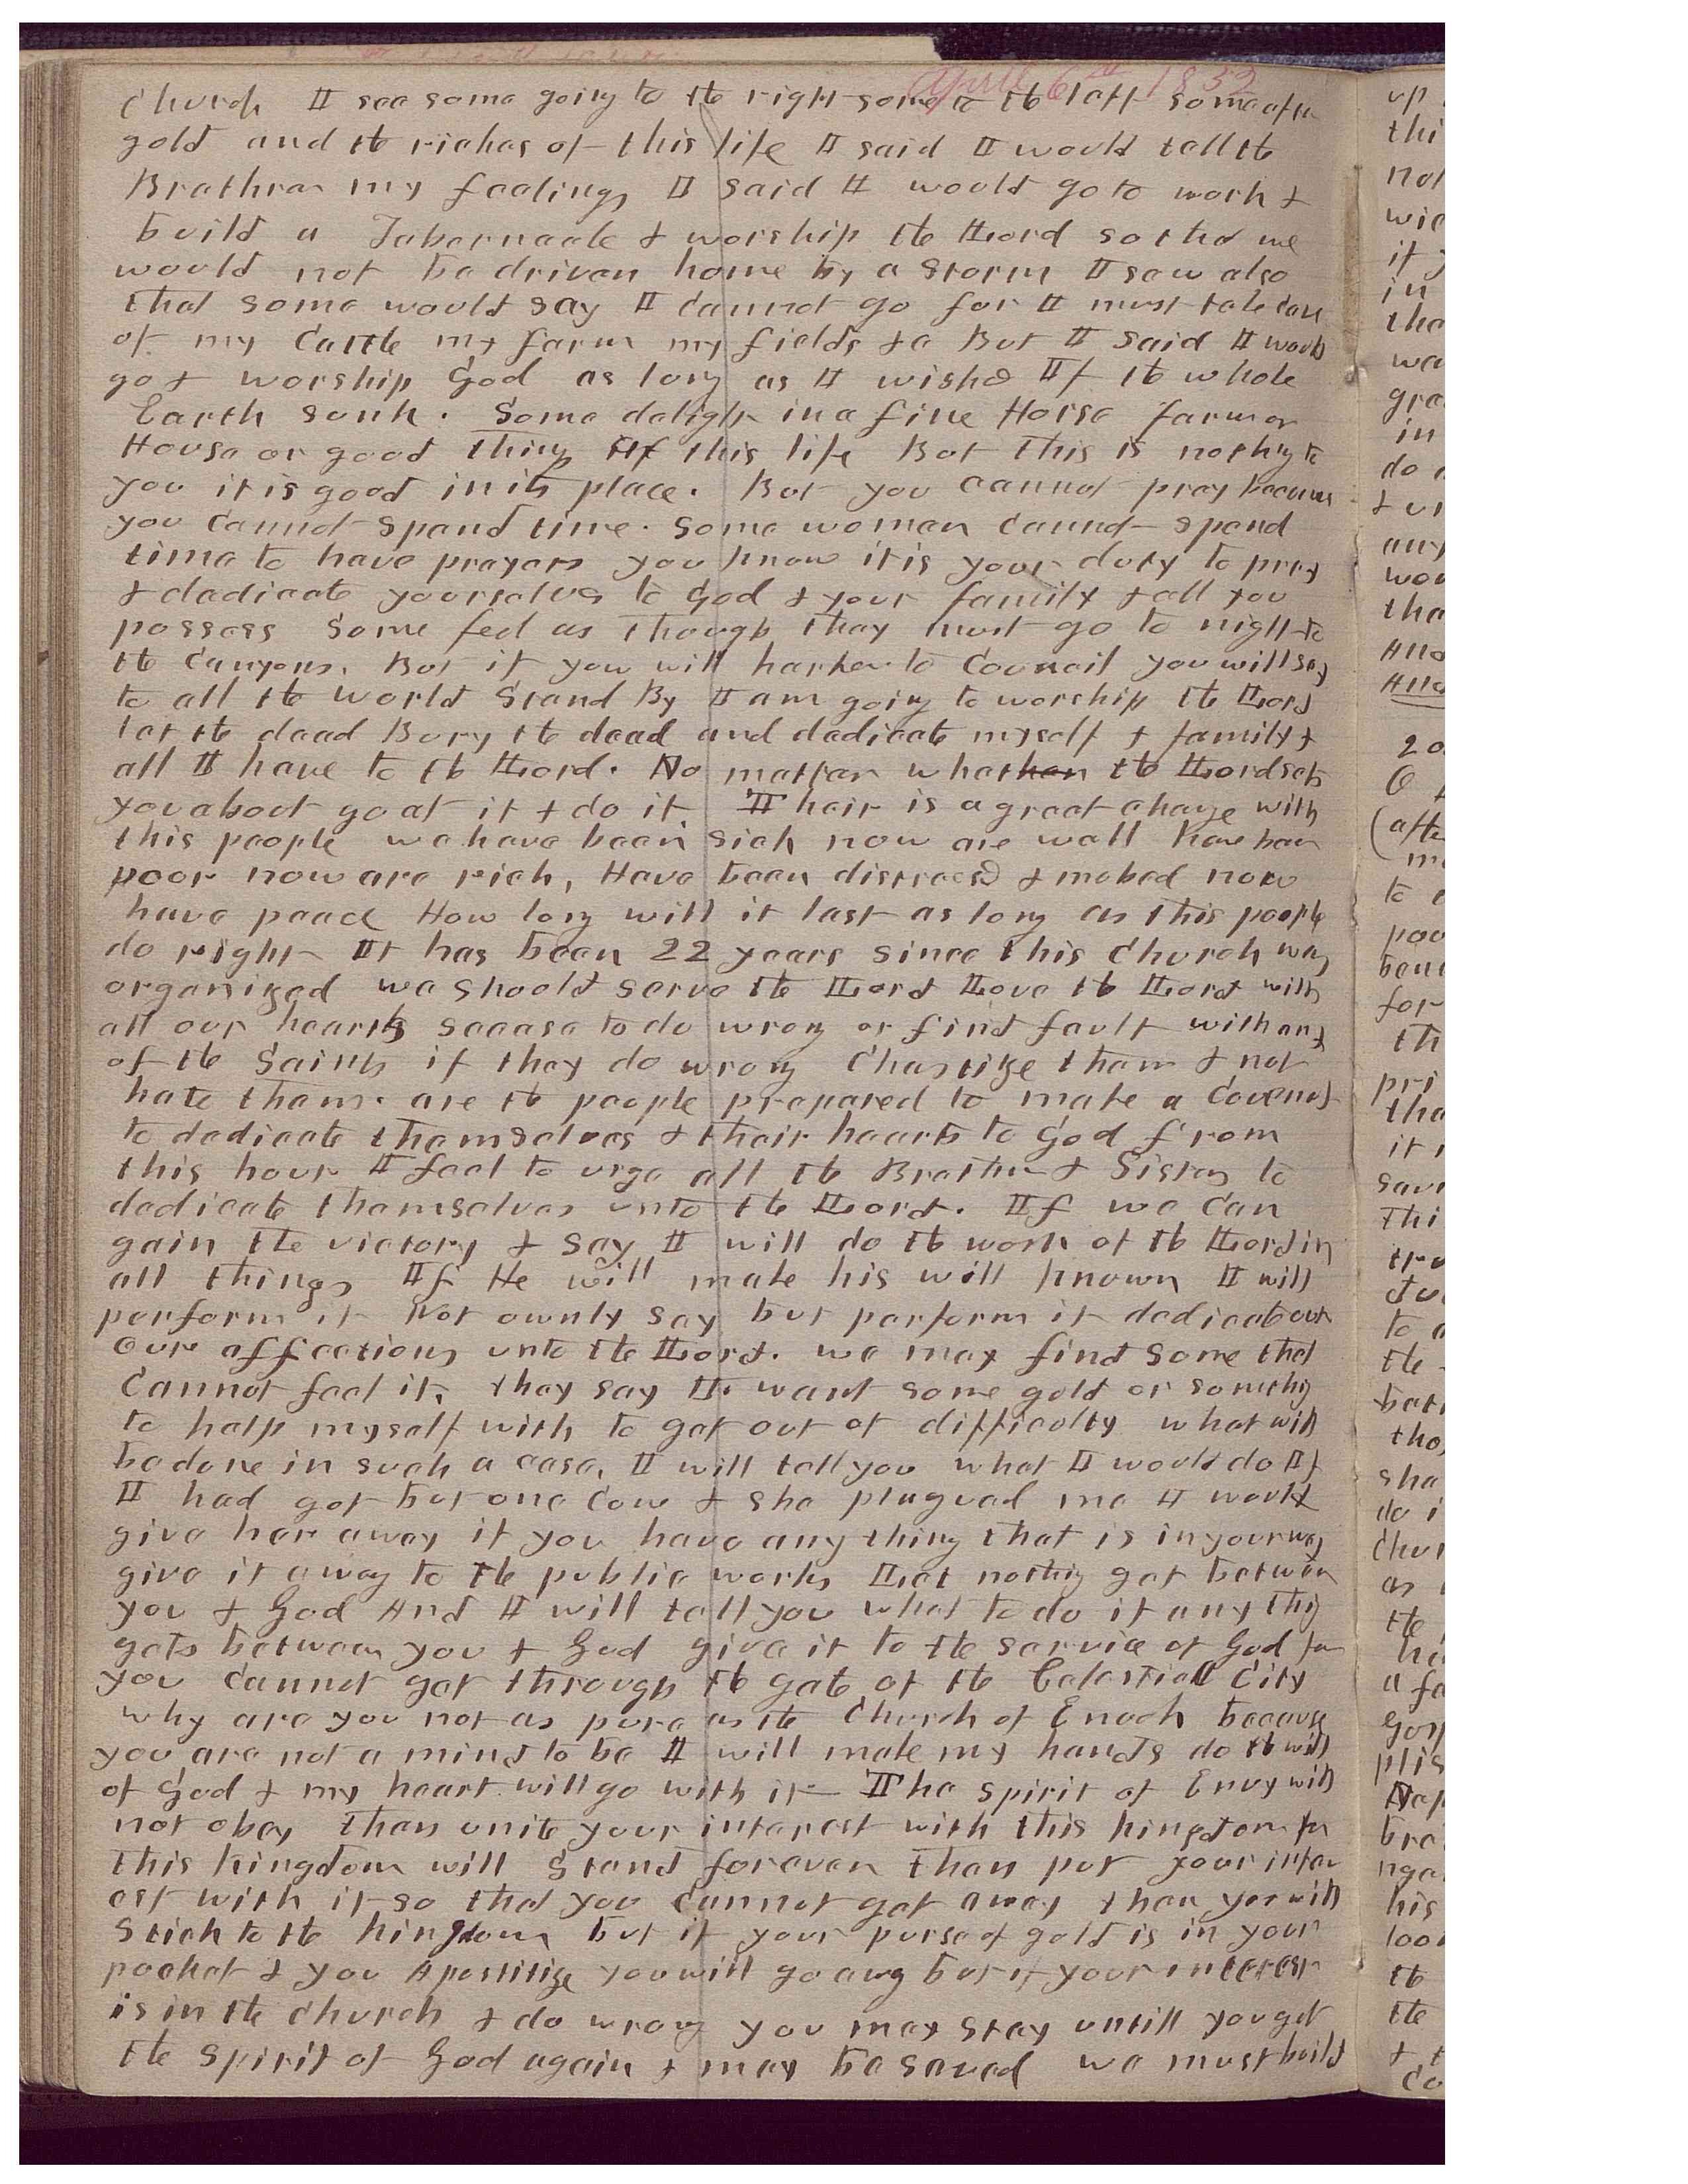 April 6th 1852
Church I see some going to the right some to the left some after
gold and the riches of this life I said I would tell the
Brethren my feelings I said I would go to work &
build a Tabernacle & worship the Lord so that we
would not be driven home by a storm I saw also
that some would say I cannot go for I must take care
of my Cattle my farm my fields &c But I said I would
go & worship God as long as I wished If the whole
Earth sunk. Some delight in a fine Horse farm or
House or good things of this life But this is nothing to
you it is good in its place. But you cannot pray because
you cannot spend time. some women cannot spend
time to have prayers you know it is your duty to pray
& dedicate yourselves to God & your family & all you
possess some feel as though they must go to night to
the Canyons. But if you will harken to Council you will say
to all the world Stand By I am going to worship the Lord
let the dead Bury the dead and dedicate myself & family &
all I have to the Lord. No matter whather the Lord sets
you about go at it & do it. Their is a great change with
this people we have been sick now are well have been
poor now are rich, Have been distressed & mobed now
have peace How long will it last as long as this people
do right It has been 22 years since this Church was
organized we should serve the Lord Love the Lord with
all our hearts seease to do wrong or find fault with any
of the Saints if they do wrong Chastize them & not
hate them. are the people prepared to make a Covenant
to dedicate themselves & their hearts to God from
this hour I feel to urge all the Brethren & Sisters to
dedicate themselves unto the Lord. If we can
gain the victory & say I will do the work of the Lord in
all things If He will make his will known I will
perform it Not ownly say but perform it dedicate our
our affections unto the Lord. we may find some that
Cannot feel it. they say I want some gold or something
to help myself with to get out of difficulty what will
be done in such a case, I will tell you what I would do If
I had got but one Cow & she plagued me I would
give her away if you have any thing that is in your way
give it away to the public works Let nothing get between
you & God And I will tell you what to do if any thing
gets between you & God give it to the service of God for
you cannot get through the gate of the Celestial City
why are you not as pure as the Church of Enoch because
you are not a mind to be I will make my hands do the will
of God & my heart will go with it The spirit of Envy will
not obey then unite your interest with this kingdom for
this kingdom will stand forever then put your inter
est with it so that you cannot get away then you will
Stick to the kingdom but if your purse of gold is in your
pocket & you Apostitize you will go away but if your interest
is in the church & do wrong you may stay untill you get
the spirit of God again & may be saved we must build